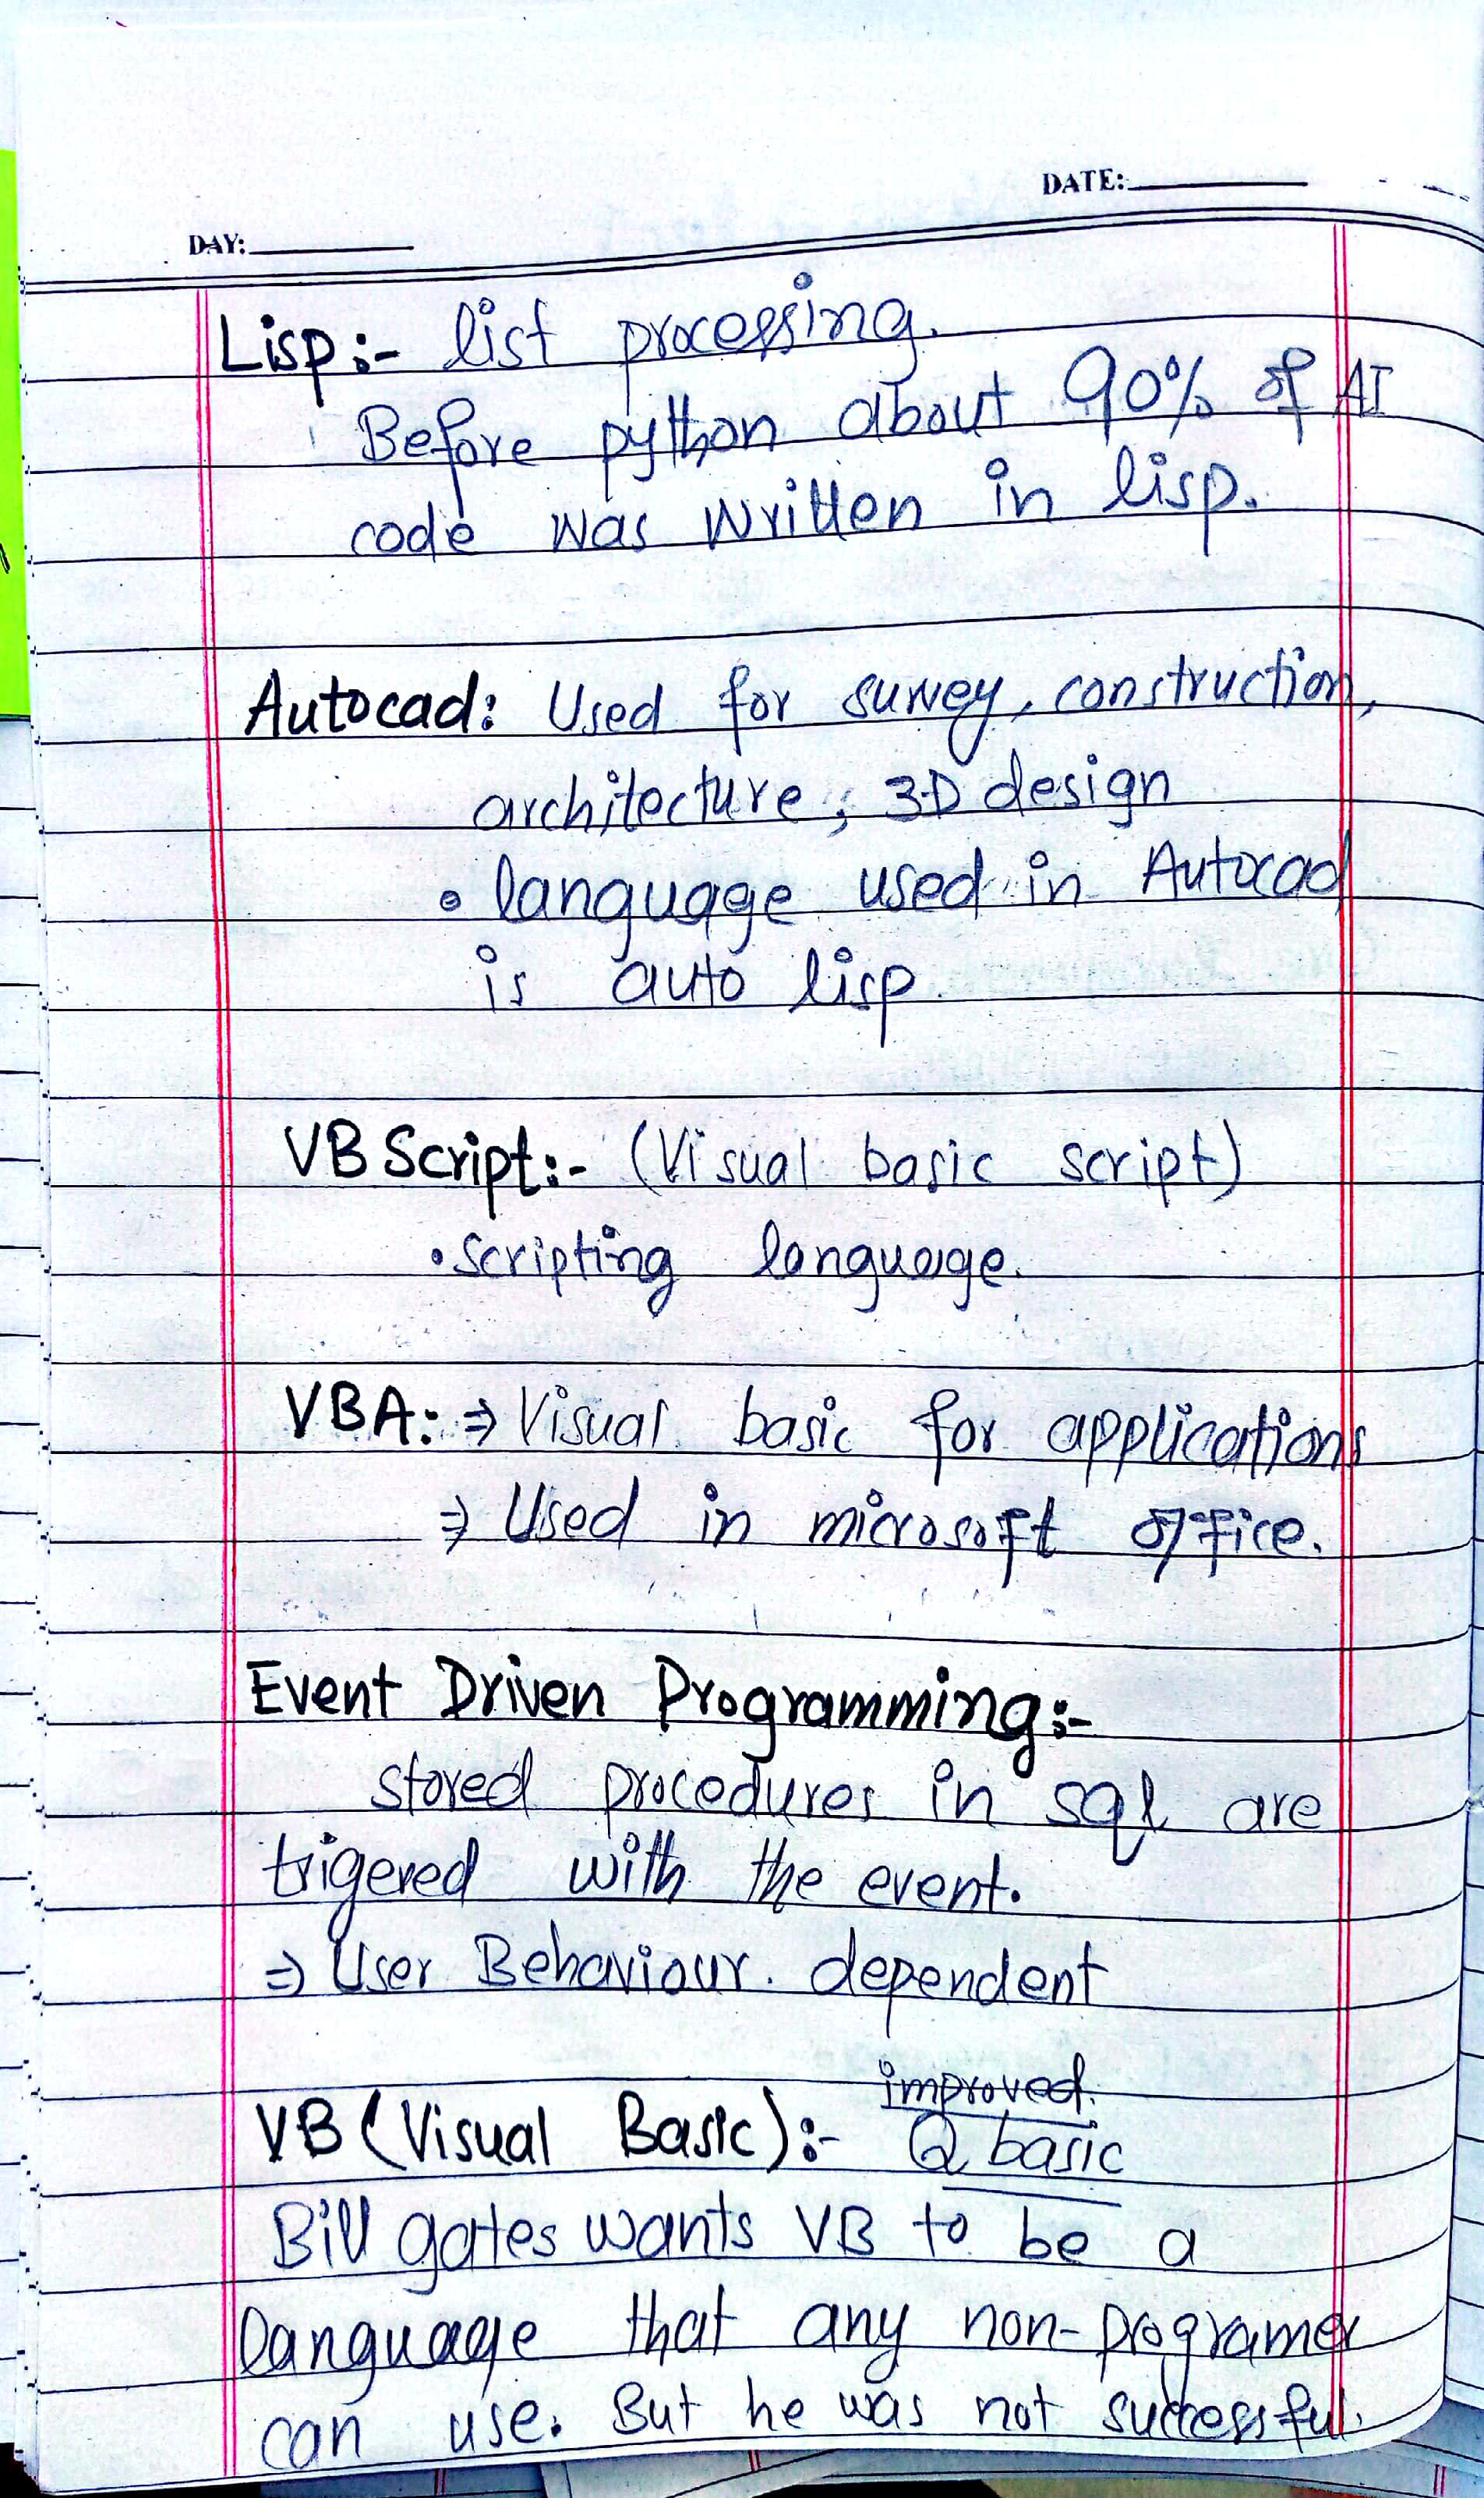 DATE:
DAY:
Lisp:- list processing.
Before python about 90% of AI
code was written in lisp.
Autocad: Used for survey, construction,
architecture, 3D design
• language used in Autocad
is auto lisp.
VB Script:- (Visual basic script)
• scripting language.
VBA: ⇒ Visual basic for applications
⇒ Used in microsoft office.
Event Driven Programming:-
stored procedures in sql are
trigered with the event.
⇒ User Behaviour dependent
improved
VB (Visual Basic):- Q basic
Bill gates wants VB to be a
language that any non-programer
can use. But he was not successful.